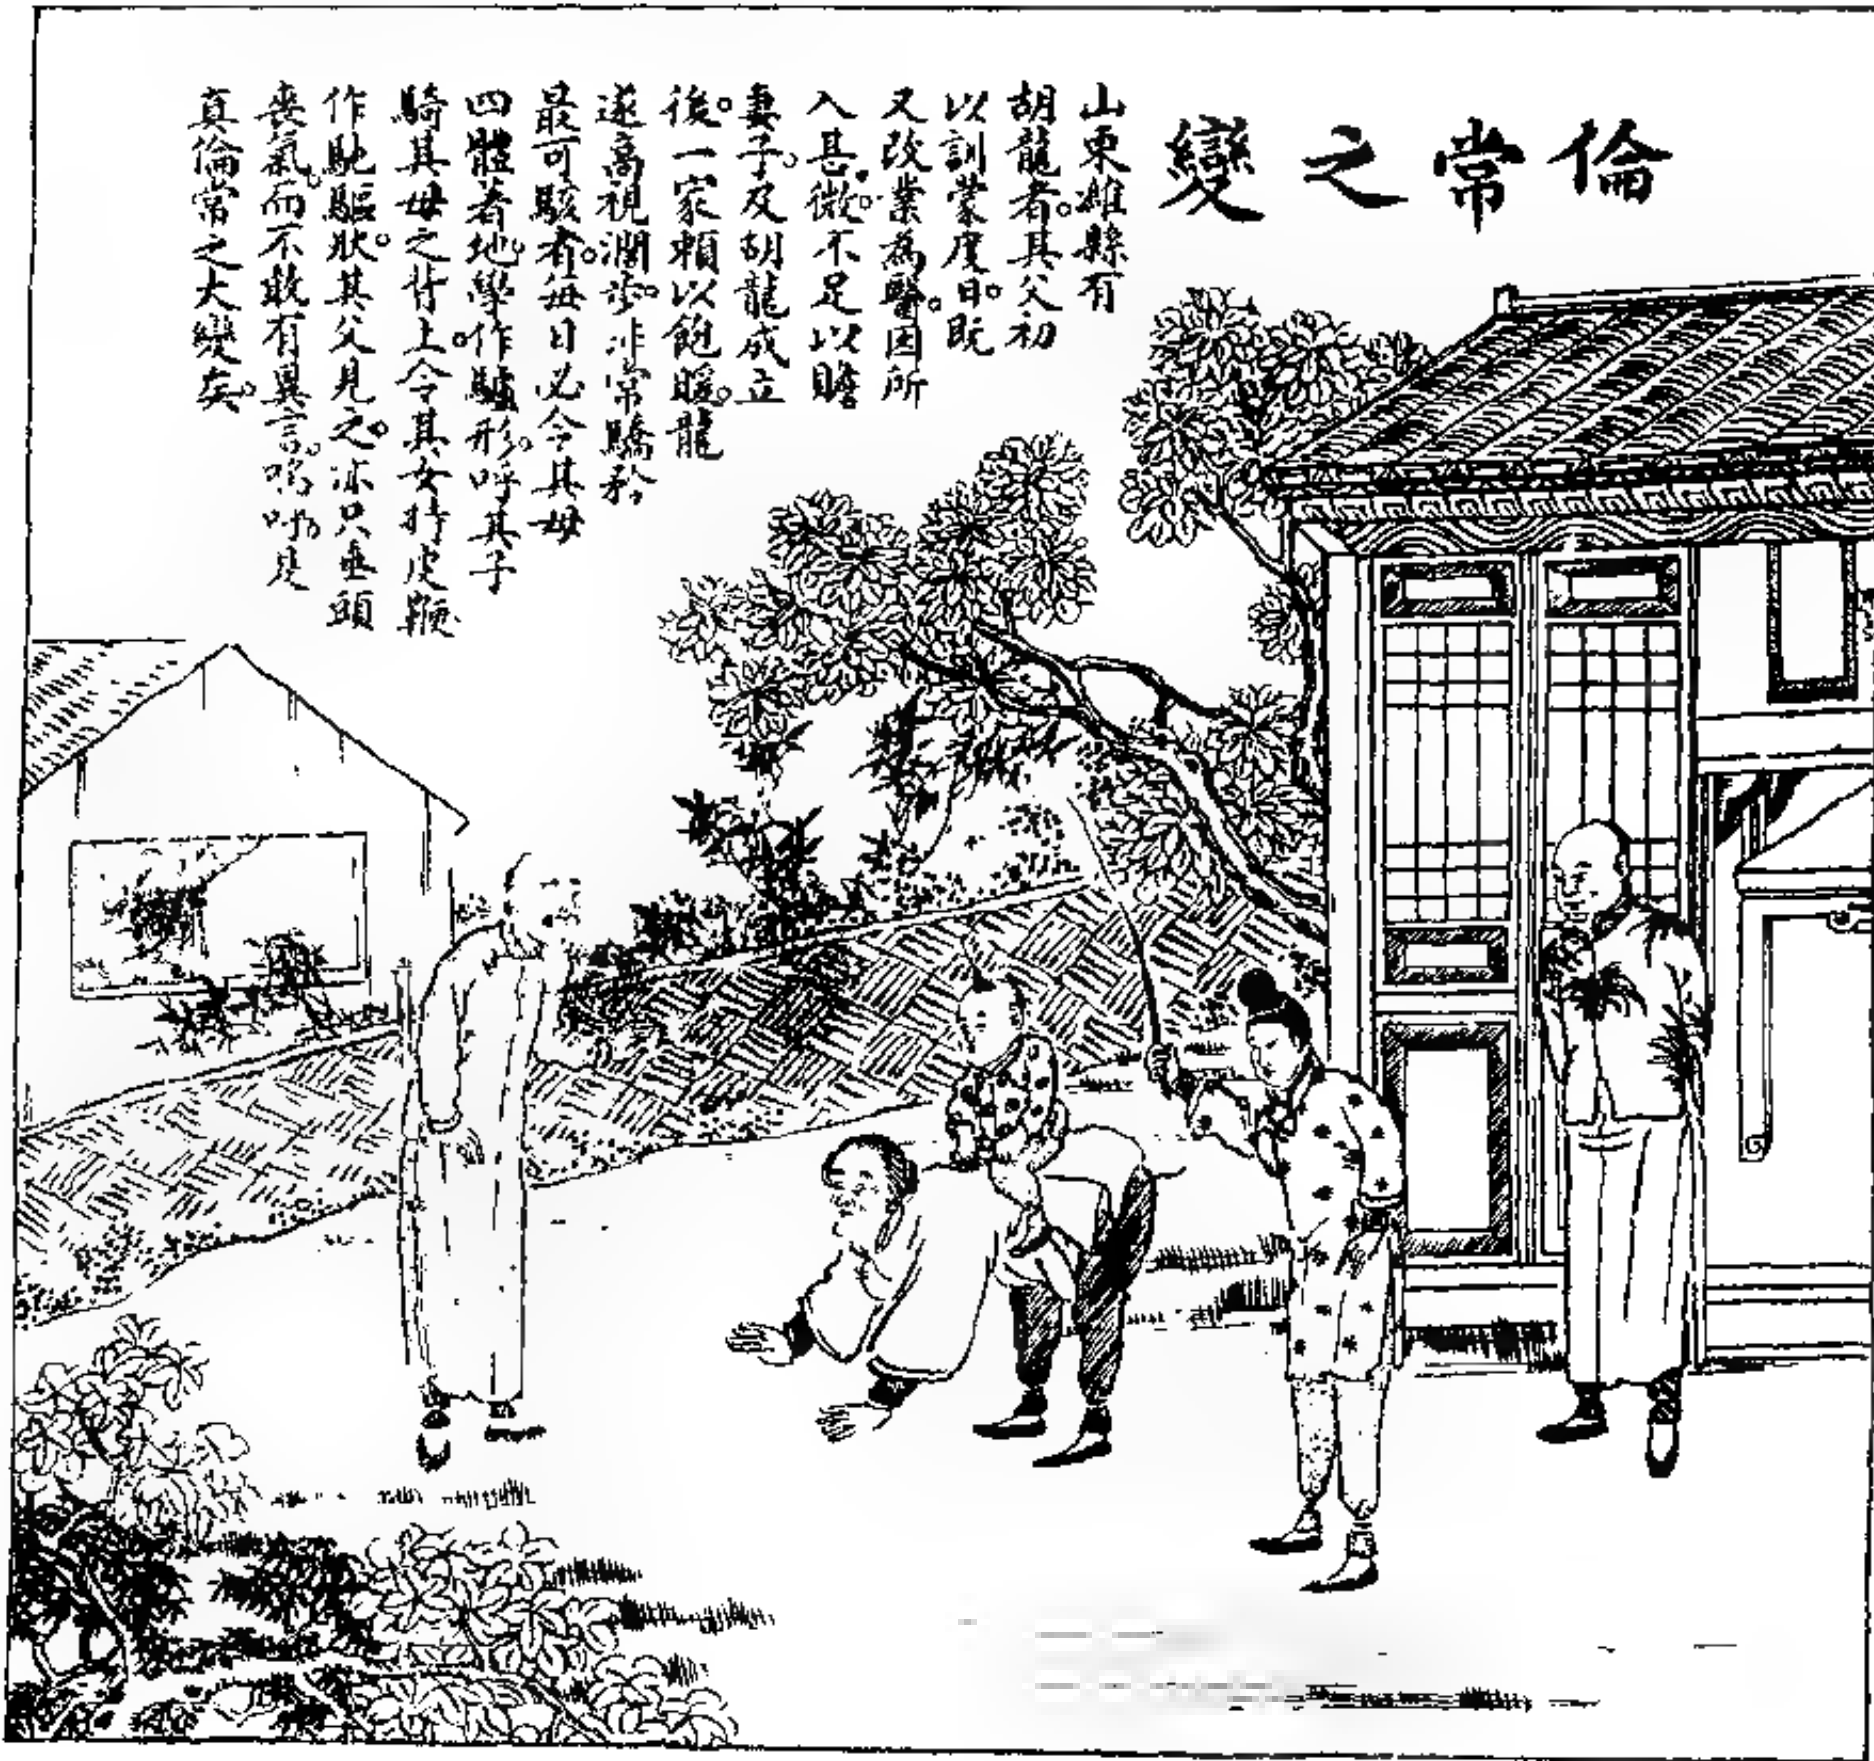 倫常之變
山東濰縣有
胡龍者。其父初
以訓蒙度日。旣
又改業為醫。因所
入甚微。不足以贍
妻子。及胡龍成立
後。一家賴以飽暖。龍
遂高視濶步。非常驕矜
最可駭者。每日必令其母
四體着地。學作驢形。呼其子
騎其母之背上。令其女持皮鞭
作馳驅狀。其父見之。亦只垂頭
喪氣。而不敢有異言。嗚呼。是
真倫常之大變矣。